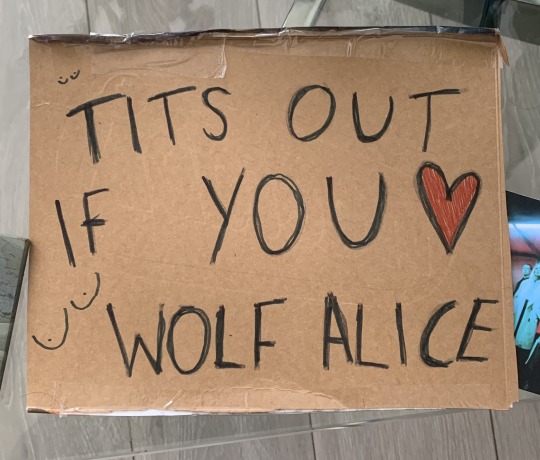 TITS OUT
IF YOU ♥
WOLF ALICE